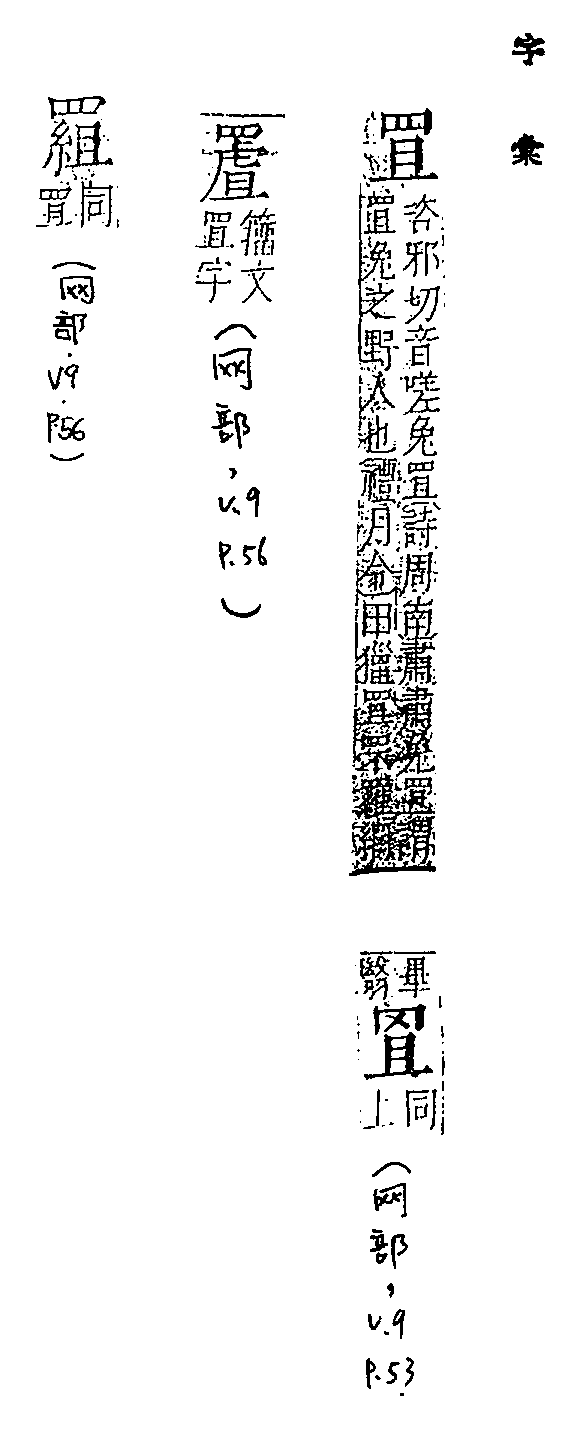 字彙
罝
咨邪切音嗟兔罝詩周南肅肅兔罝謂
罝兔之野人也禮月令田獵罝罘羅網
畢
翳
𦊨
同
上
(网部,v.9
P.53
籀文
罝字
(网部,v.9
P.56)
同
罝
(网部.V9.
P.56)